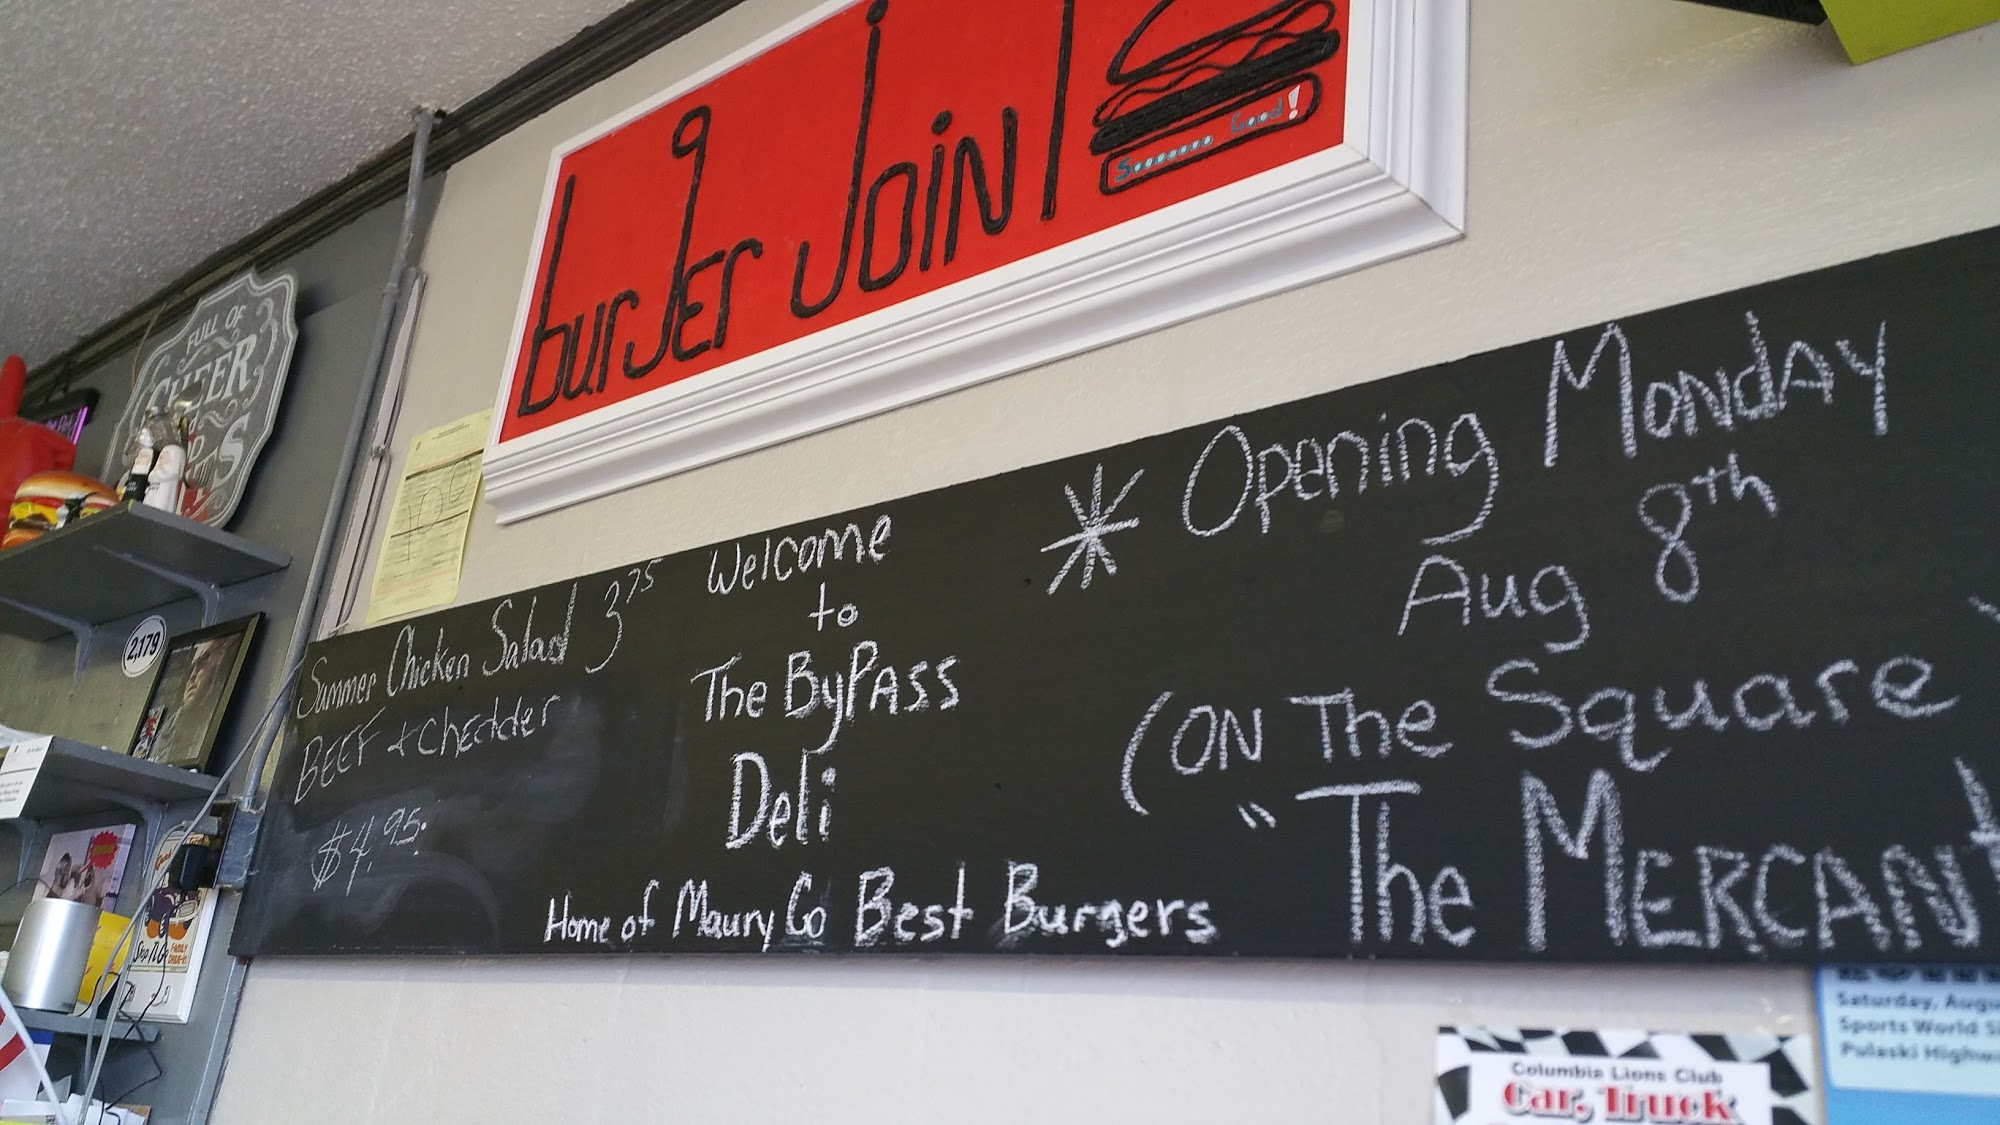 burger Joint
Soooooooo Good!
FULL OF
CHEER
2,179
100
Summer Chicken Salad 3 75
BEEF + Chedder
$4.95.
Welcome
to
The ByPass
Deli
Home of Maury Co Best Burgers
* Opening Monday
Aug 8th
(ON The Square
"The MERCANT
Stop N Go FAMILY
DRIVE-IN
Columbia Lions Club
Car, Truck
Saturday, Augu
Sports World
Pulaski Highw